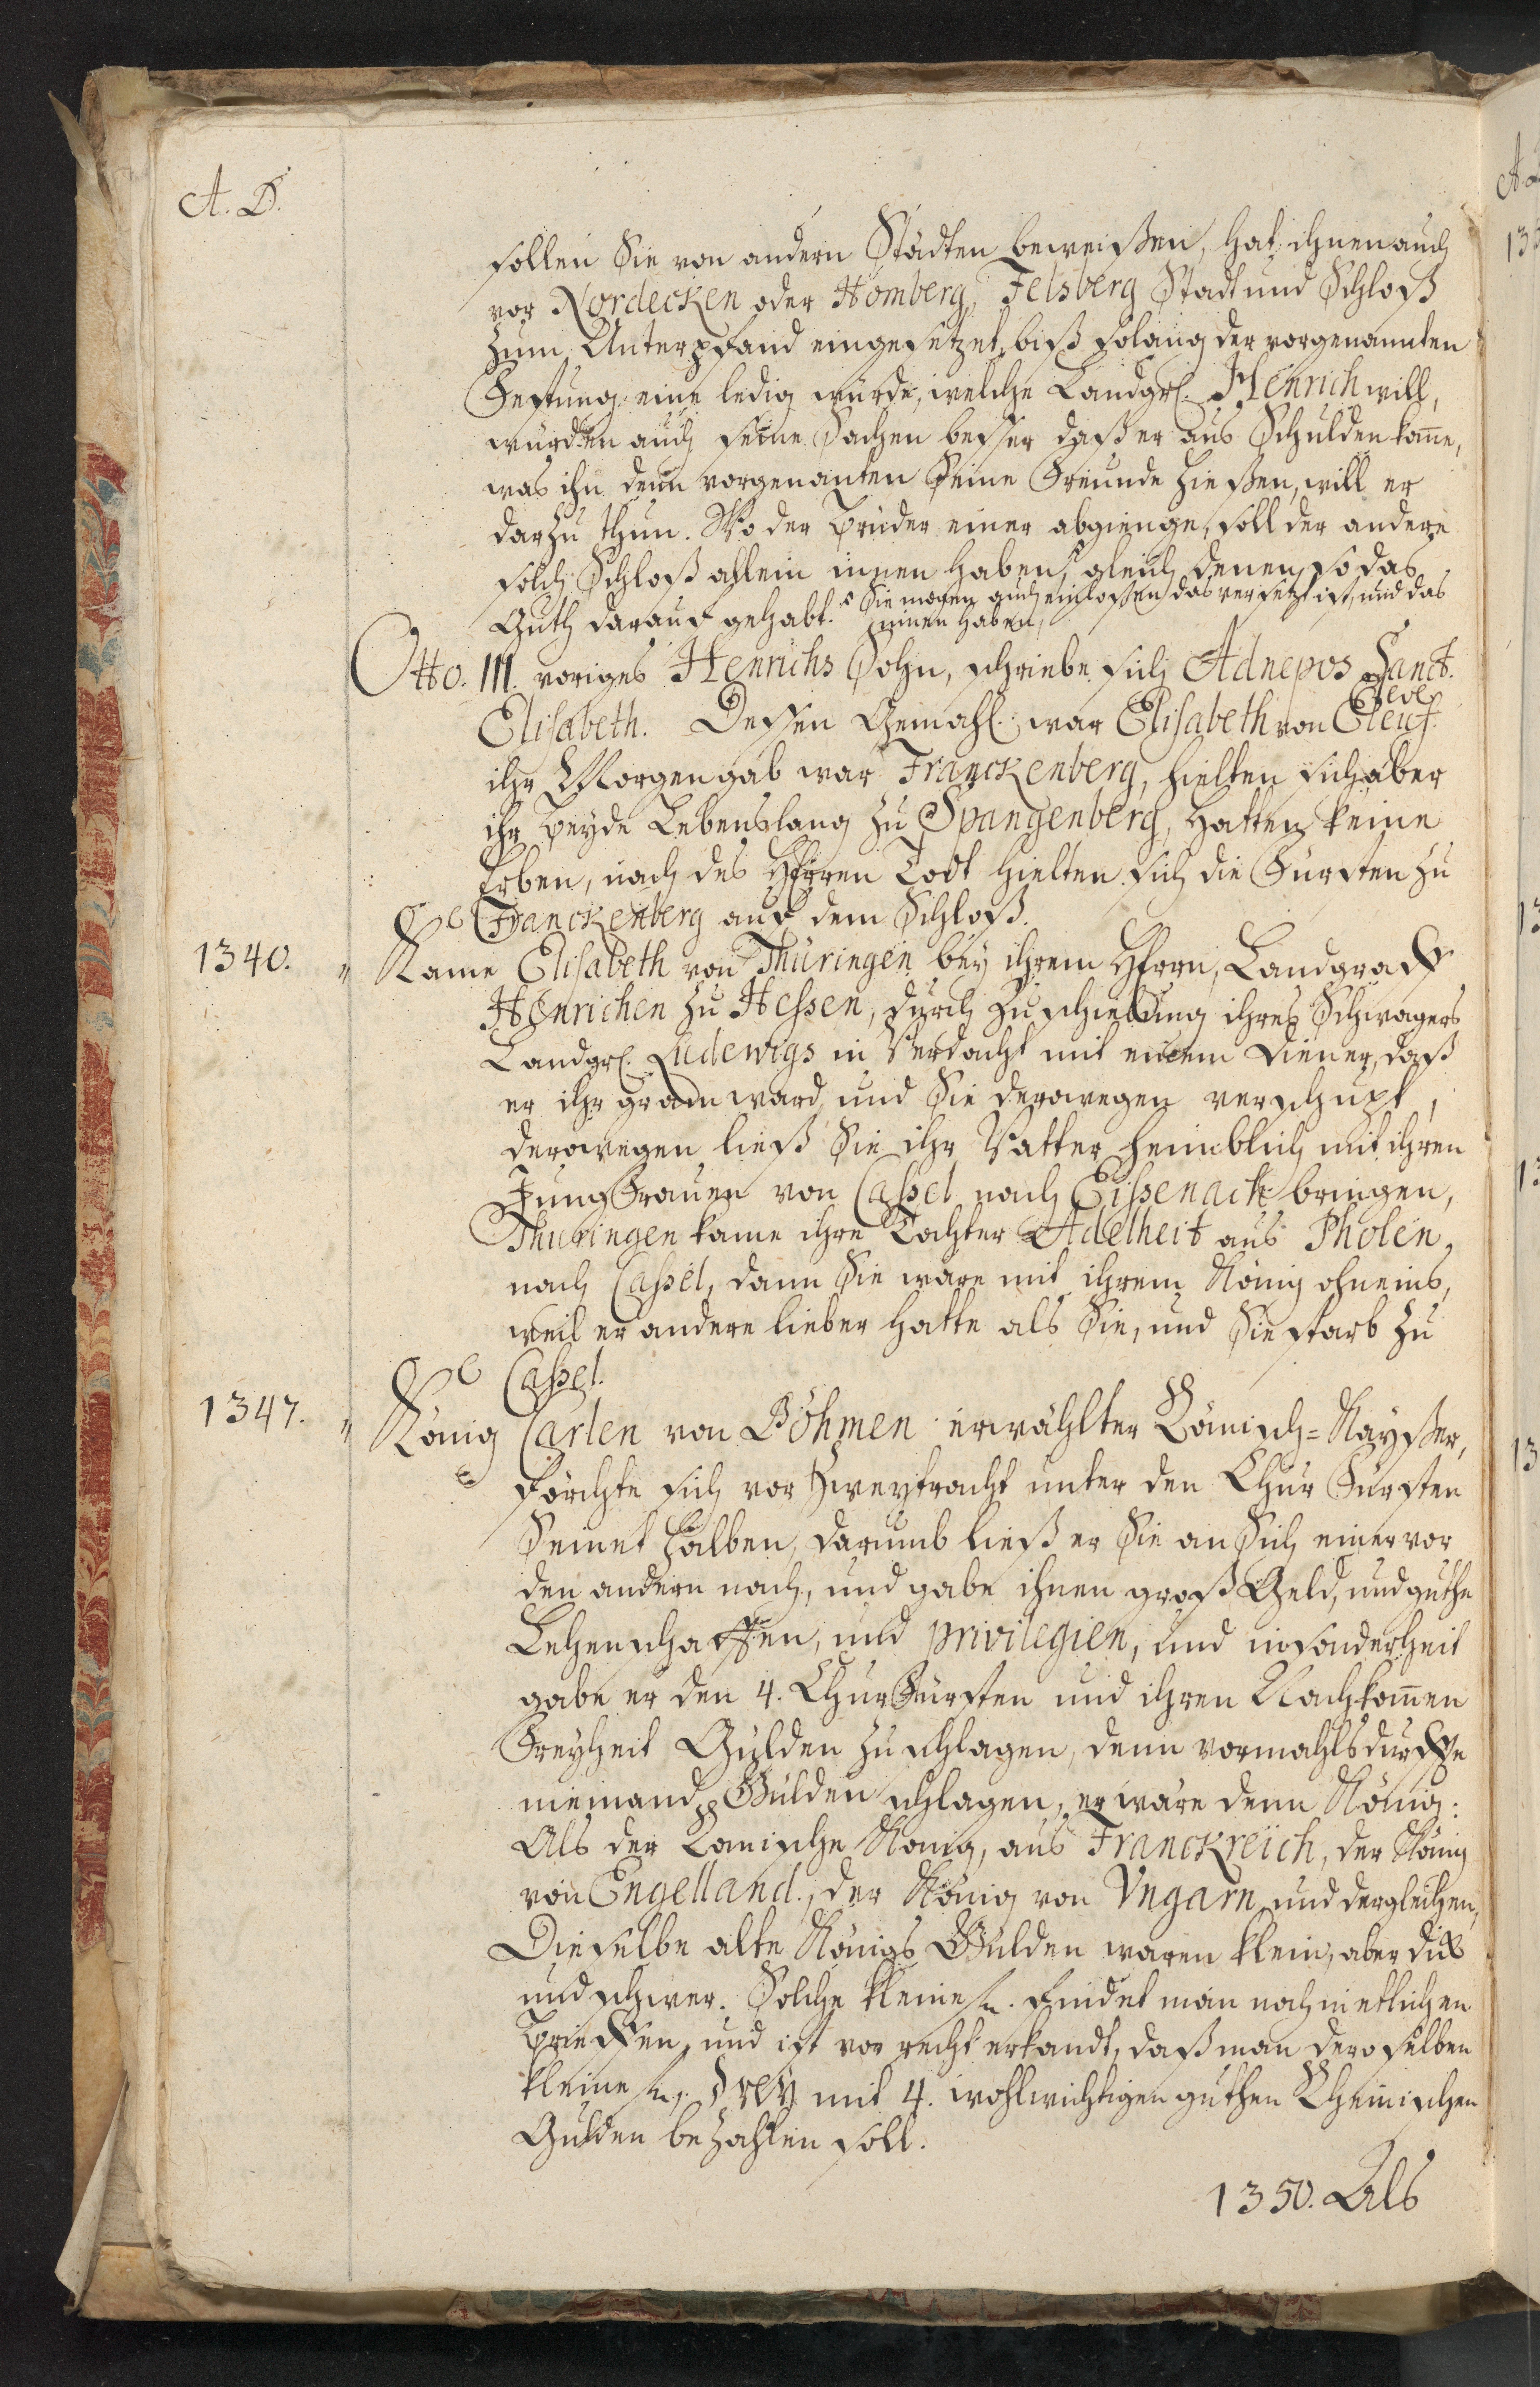 A. D.
sollen Sie von andern Städten beweißen, hat ihnen auch
vor Nordecken oder Homberg, Felsberg Stadt und Schloß
zum Unterpfand eingesetzet, biß solang der vorgenannten
Festung eine ledig würde, welche Landgr. Henrich will,
würdten auch seine Sachen besser daß er aus Schulden kam̄e,
was ihn denn vorgenanten Seine Freunde hießen, will er
darzu thun. Wo der Brüder einer abgienge, soll der andere
solch Schloß allein innen haben, gleich denen so das
Guth darauf gehabt. Sie mögen auch einlößen das versetzt ist, und das
innen haben,
Otto. III. voriges Henrichs Sohn, schriebe sich Adnepos Sanct.
Elisabeth. Dessen Gemahl. war Elisabeth von Cleve
ihr Morgengab war Franckenberg, hielten sich aber
ihr Beyde Lebenslang zu Spangenberg, hatten keine
Erben, nach des Herren Todt hielten sich die Fürsten zu
Franckenberg auf dem Schloß.
1340. " Kame Elisabeth von Thüringen bey ihrem Herrn, Landgraff
Henrichen zu Hessen, durch Zuschiebung ihres Schwagers
Landgr. Ludewigs in Verdacht mit einem Diener, daß
er ihr gram ward, und Sie derowegen verschupt,
derowegen ließ Sie ihr Vatter heimblich mit ihren
Jung Frauen von Cassel nach Eissenack bringen,
Thuringen kame ihre Tochter Adelheit aus Pholen,
nach Cassel, dann Sie ware mit ihrem König ohneins,
weil er andere lieber hatte als Sie, und Sie starb zu
Cassel.
1347. " König Carlen von Böhmen erwählter Römisch-Kayßer,
förchte sich vor Zweytracht unter den Chur Fürsten
Seinet halben, darumb ließ er Sie an Sich einer vor
den andern nach, und gabe ihnen groß Geld, und guthe
Lehenschafften, und privilegien, und insonderheit
gabe er den 4. ChurFürsten und ihren Nachkom̄en
Freyheit Gülden zu schlagen, denn vormahls durffte
niemand Gülden schlagen, er wäre denn König:
Als der Römische König, aus Franckreich, der König
von Engelland., der König von Vngarn und dergleichen,
Dieselbe alte Königs Gülden waren klein, aber dick
und schwer. Solche kleine fl. findet man noch in etlichen
Brieffen, und ist vor recht erkandt, daß man deroselben
kleine fl., drey mit 4. wohlwichtigen guthen Rheinischen
Gulden bezahlen soll.
1350. Als